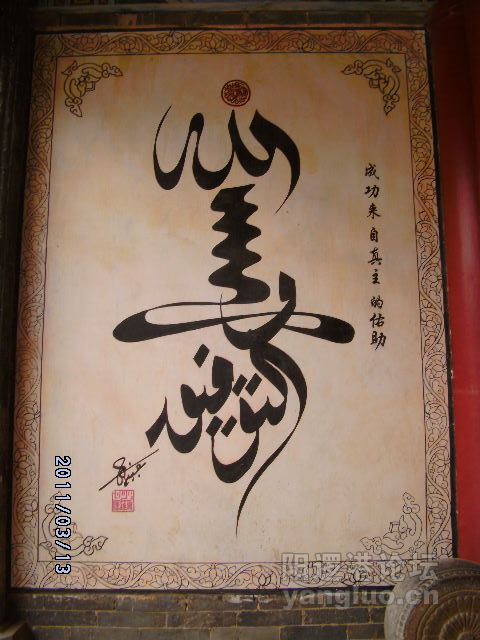 الله
التوفيق
成功来自真主的佑助
2011/03/13
阳逻港论坛
yangluo.cn